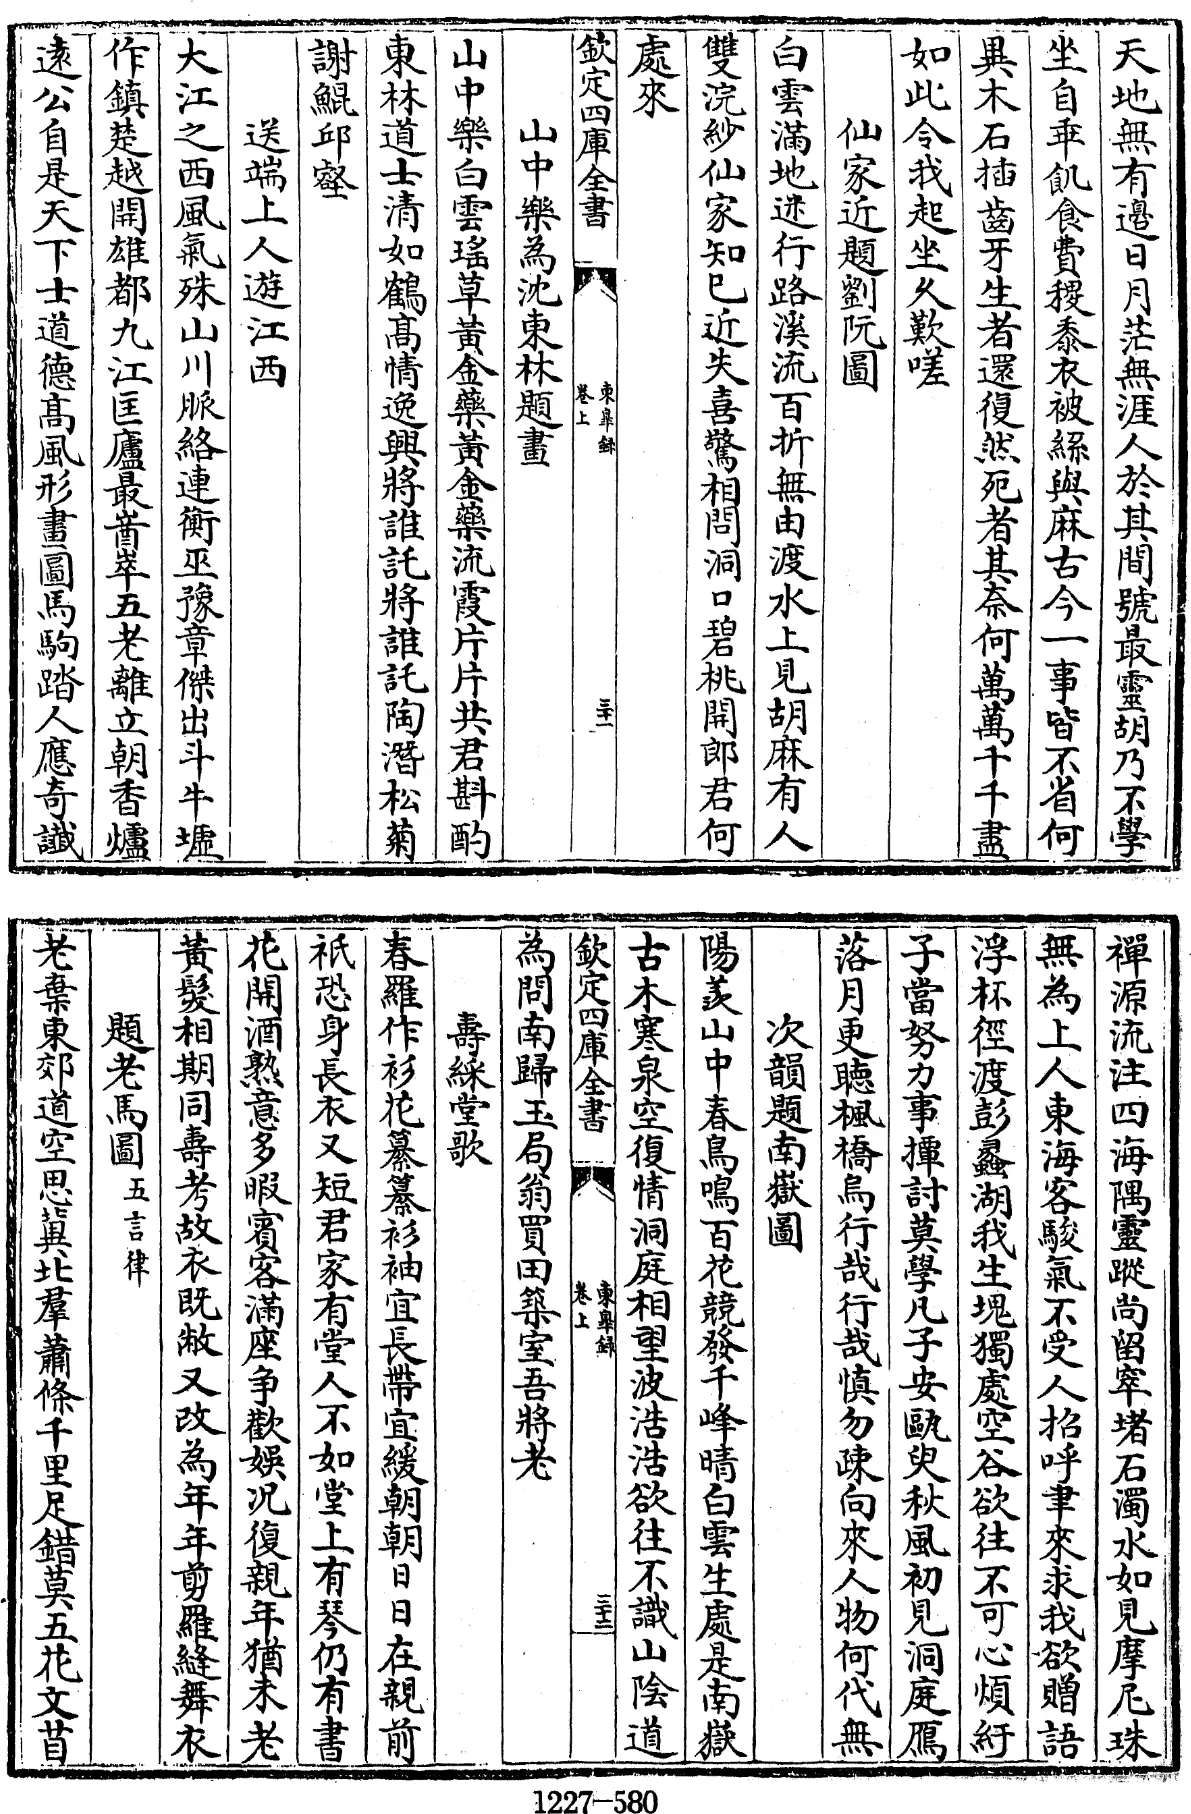 天地無有邉日月茫無涯人於其間號最靈胡乃不學
坐自乖飢食費稷黍衣被絲與麻古今一事皆不省何
異木石插齒牙生者還復然死者其奈何萬萬千千盡
如此令我起坐久歎嗟
仙家近題劉阮圖
白雲滿地迷行路溪流百折無由渡水上見胡麻有人
雙浣紗仙家知已近失喜驚相問洞口碧桃開郎君何
處來
欽定四庫全書
東臯録
卷上
三十一
山中樂為沈東林題畫
山中樂白雲瑤草黃金藥黃金藥流霞片片共君斟酌
東林道士清如鶴高情逸興將誰託將誰託陶潛松菊
謝鯤邱壑
送端上人遊江西
大江之西風氣殊山川脈絡連衡巫豫章傑出斗牛墟
作鎮楚越開雄都九江匡廬最崷崒五老離立朝香爐
遠公自是天下士道德高風形畫圖馬駒踏人應奇讖
禪源流注四海隅靈蹤尚留窣堵石濁水如見摩尼珠
無為上人東海客駿氣不受人招呼聿來求我欲贈語
浮杯徑渡彭蠡湖我生塊獨處空谷欲往不可心煩紆
子當努力事揮討莫學凡子安甌臾秋風初見洞庭鴈
落月更聽楓橋烏行哉行哉慎勿疎向來人物何代無
次韻題南嶽圖
陽羨山中春鳥鳴百花競發千峰晴白雲生處是南嶽
古木寒泉空復情洞庭相望波浩浩欲往不識山陰道
欽定四庫全書
東臯録
卷上
三十二
為問南歸玉局翁買田築室吾將老
壽綵堂歌
春羅作衫花纂纂衫袖宜長帶宜緩朝朝日日在親前
祇恐身長衣又短君家有堂人不如堂上有琴仍有書
花開酒熟意多暇賓客滿座争歡娛况復親年猶未老
黃髮相期同壽考故衣既敝又改為年年剪羅縫舞衣
題老馬圖五言律
老棄東郊道空思冀北羣蕭條千里足錯莫五花文苜
1227-580